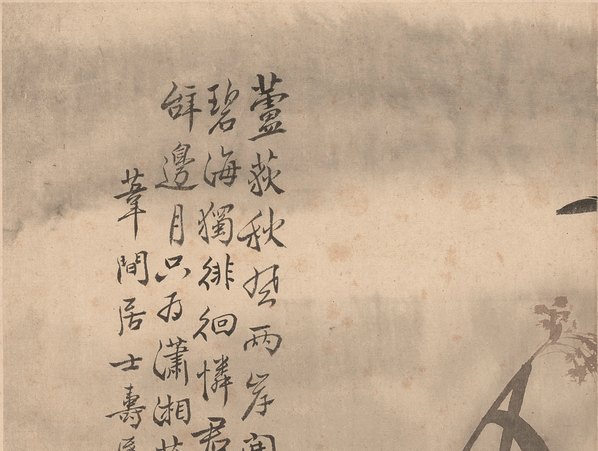 蘆荻秋两岸
碧海獨徘徊憐君
邊月只为瀟湘
葦間居士壽